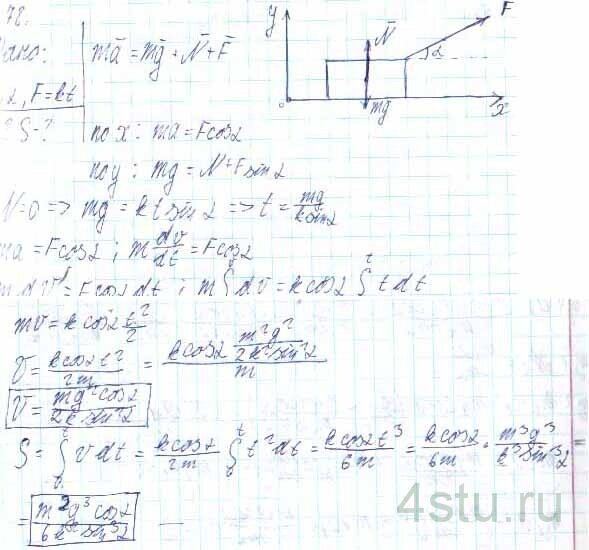 78.
Дано:
α, F=kt
S-?
ma̅ = mg̅ + N̅ + F̅
y
N̅
F
α
mg
0
x
по x: ma = Fcosα
по y: mg = N+Fsinα
N=0 => mg = kt sinα => t = mg/(k sinα)
ma = Fcosα ; m dv/dt = Fcosα
m dv = Fcosα dt ; m∫dv = k cosα ∫ t dt
mv = k cosα t²/2
v = (k cosα t²)/(2m) = (k cosα (m²g²)/(2k² sin²α))/m
v = (mg² cosα)/(2k sin²α)
S = ∫ v dt = (k cosα)/(2m) ∫ t² dt = (k cosα t³)/(6m) = (k cosα)/(6m) · (m³g³)/(k³ sin³α) =
= (m²g³ cosα)/(6k² sin³α)
4stu.ru